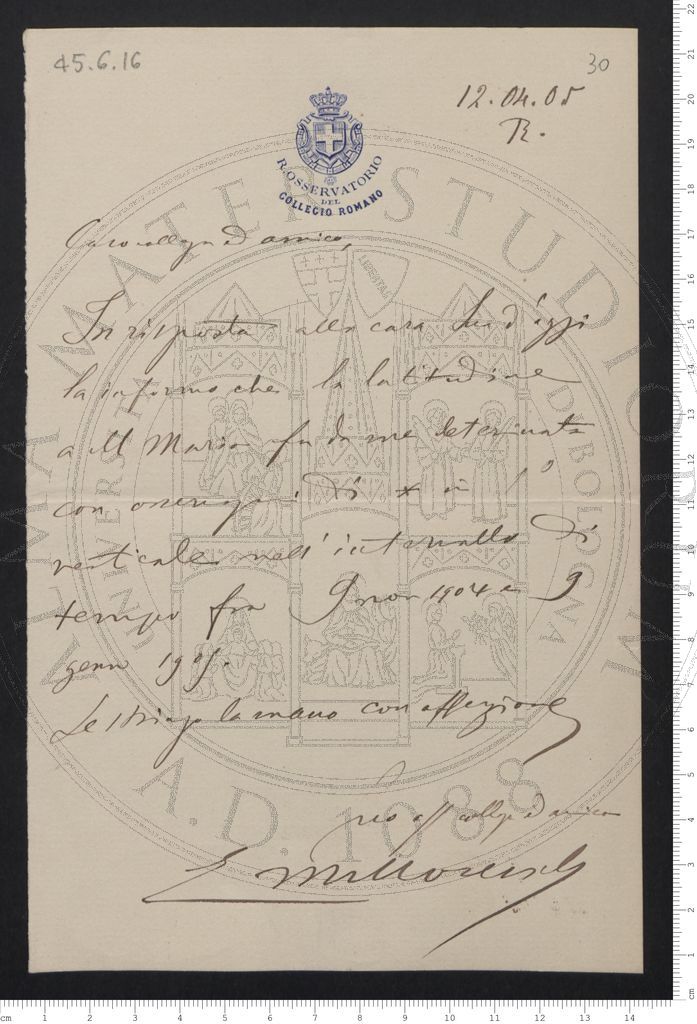 45.6.16
30
12.04.05
R.
R. OSSERVATORIO
DEL
COLLEGIO ROMANO
Caro collega ed amico,
In risposta alla cara Sua d'oggi
la informo che la latitudine
a M Mario fu da me determinata
con osservazioni di * in 1°
verticale nell'intervallo di
tempo fra 9 nov 1904 e 9
genn 1905.
Le stringo la mano con affezione
suo aff collega ed amico
E Millosevich
ALMA MATER STUDIORUM
UNIVERSITÀ DI BOLOGNA
LIBERTAS
A.D. 1088